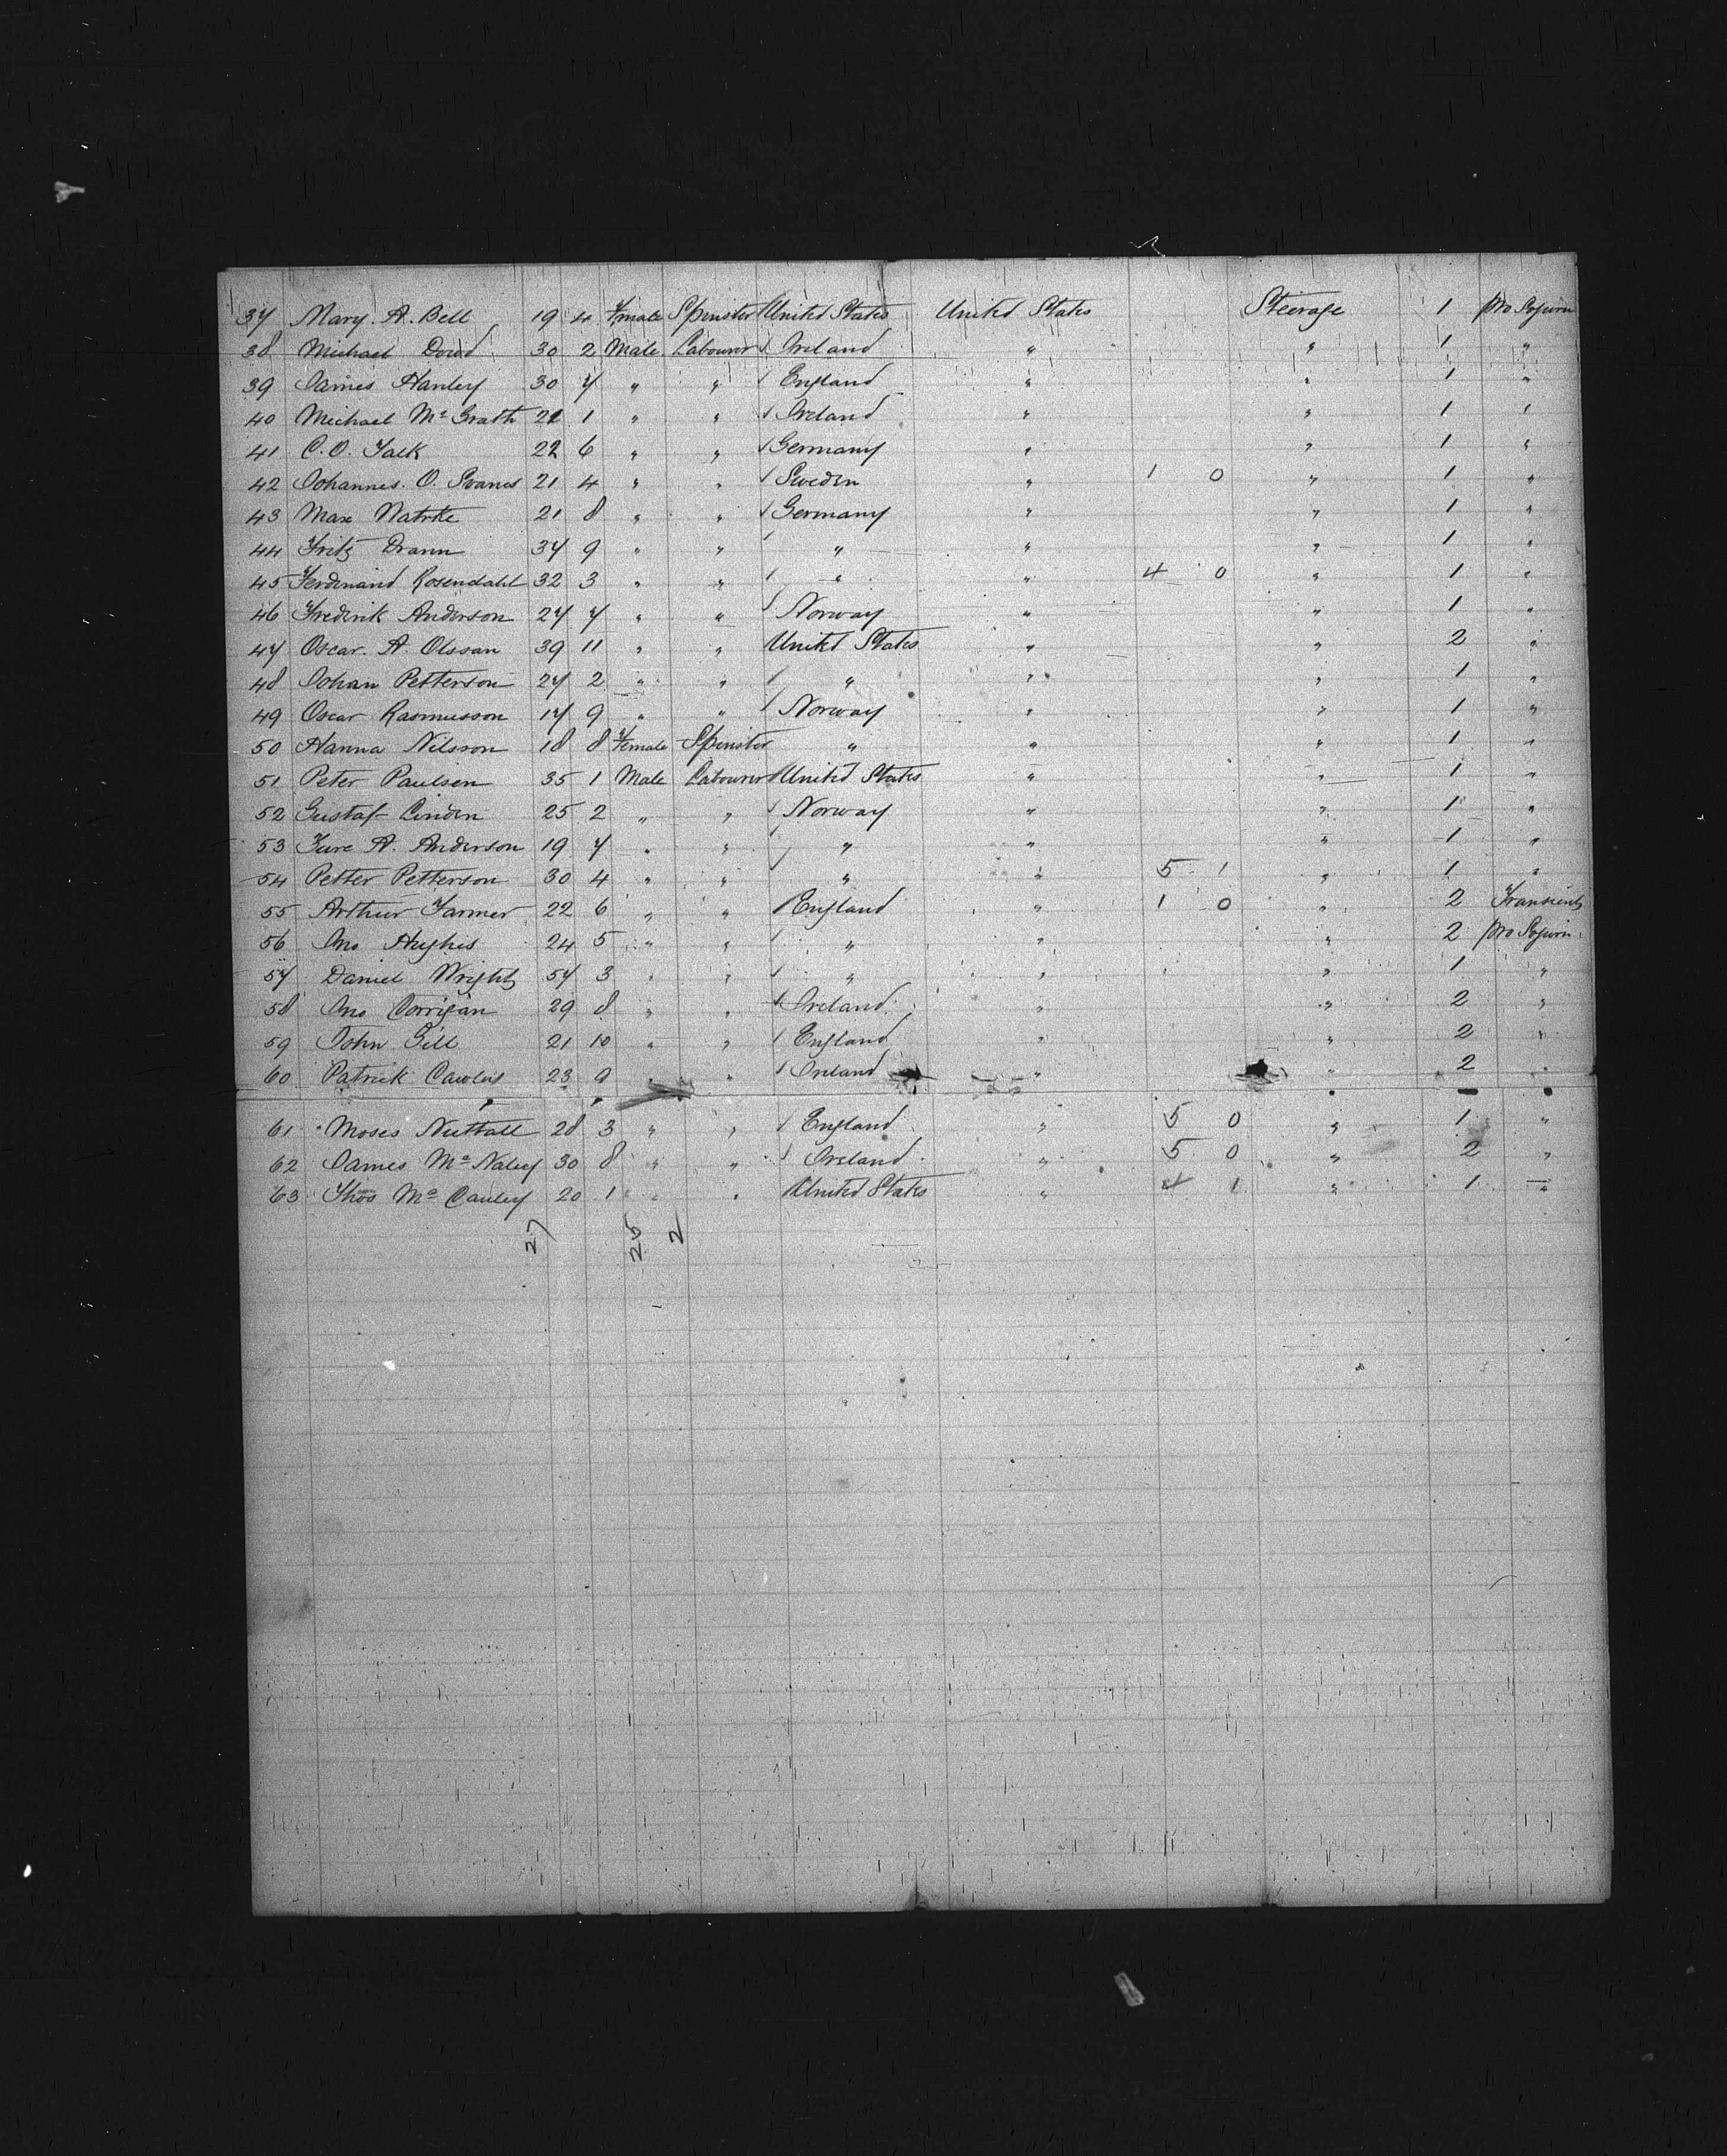 37 Mary. A. Bell 19 4 Female Spinster United States United States Steerage 1 Pro Sojourn
38 Michael Dowd 30 2 Male Labourer Ireland " " 1 "
39 James Hanley 30 7 " " England " " 1 "
40 Michael Mc Grath 21 1 " " Ireland " " 1 "
41 C. O. Falk 22 6 " " Germany " " 1 "
42 Johannes. O. Svanes 21 4 " " Sweden " 1 0 " 1 "
43 Max Natrke 21 8 " " Germany " " 1 "
44 Fritz Drann 37 9 " " " " " 1 "
45 Ferdinand Rosendahl 32 3 " " " " 4 0 " 1 "
46 Fredrik Anderson 27 7 " " Norway " " 1 "
47 Oscar. A. Olssan 39 11 " " United States " " 2 "
48 Johan Petterson 27 2 " " " " " 1 "
49 Oscar Rasmusson 17 9 " " Norway " " 1 "
50 Hanna Nilsson 18 8 Female Spinster " " " 1 "
51 Peter Paulsen 35 1 Male Labourer United States " " 1 "
52 Gustaf Linden 25 2 " " Norway " " 1 "
53 Ture A. Anderson 19 7 " " " " " 1 "
54 Petter Petterson 30 4 " " " " 5 1 " 1 "
55 Arthur Farmer 22 6 " " England " 1 0 " 2 Transient
56 Jno Hughes 24 5 " " " " " 2 Pro Sojourn
57 Daniel Wright 57 3 " " " " " 1 "
58 Jno Corrigan 29 8 " " Ireland " " 2 "
59 John Gill 21 10 " " England " " 2 "
60 Patrick Cawley 23 9 " " Ireland " " 2 "
61 Moses Nuttall 28 3 " " England " 5 0 " 1 "
62 James Mc Naley 30 8 " " Ireland " 5 0 " 2 "
63 Thos Mc Cauley 20 1 " " United States " 4 1 " 1 "
27 25 2